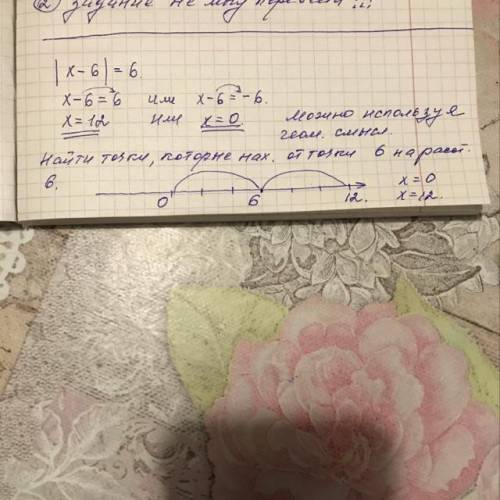 ② задание не могу
|x-6|=6.
x-6=6 или x-6=-6.
x=12 или x=0. Можно используя
геом. смысл.
Найти точки, которые нах. от точки 6 на расст.
6.
0 6 12.
x=0
x=12.